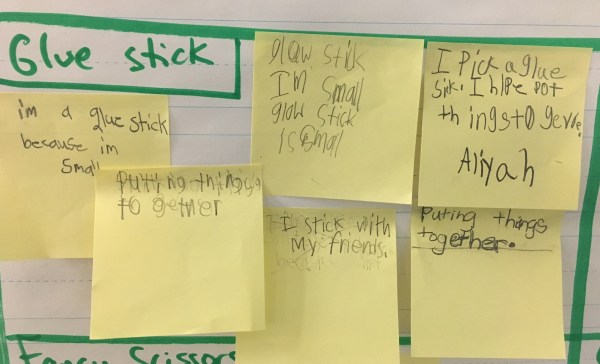 Glue stick
im a glue stick
because im
small
glow stik
I'm small
glow stick
is small
I Pick a glue
Sik. I hlpe pot
things to gerve.
Aliyah
Putting things
to gether
I stick with
My friends.
Puting things
together.
Fancy Scissors